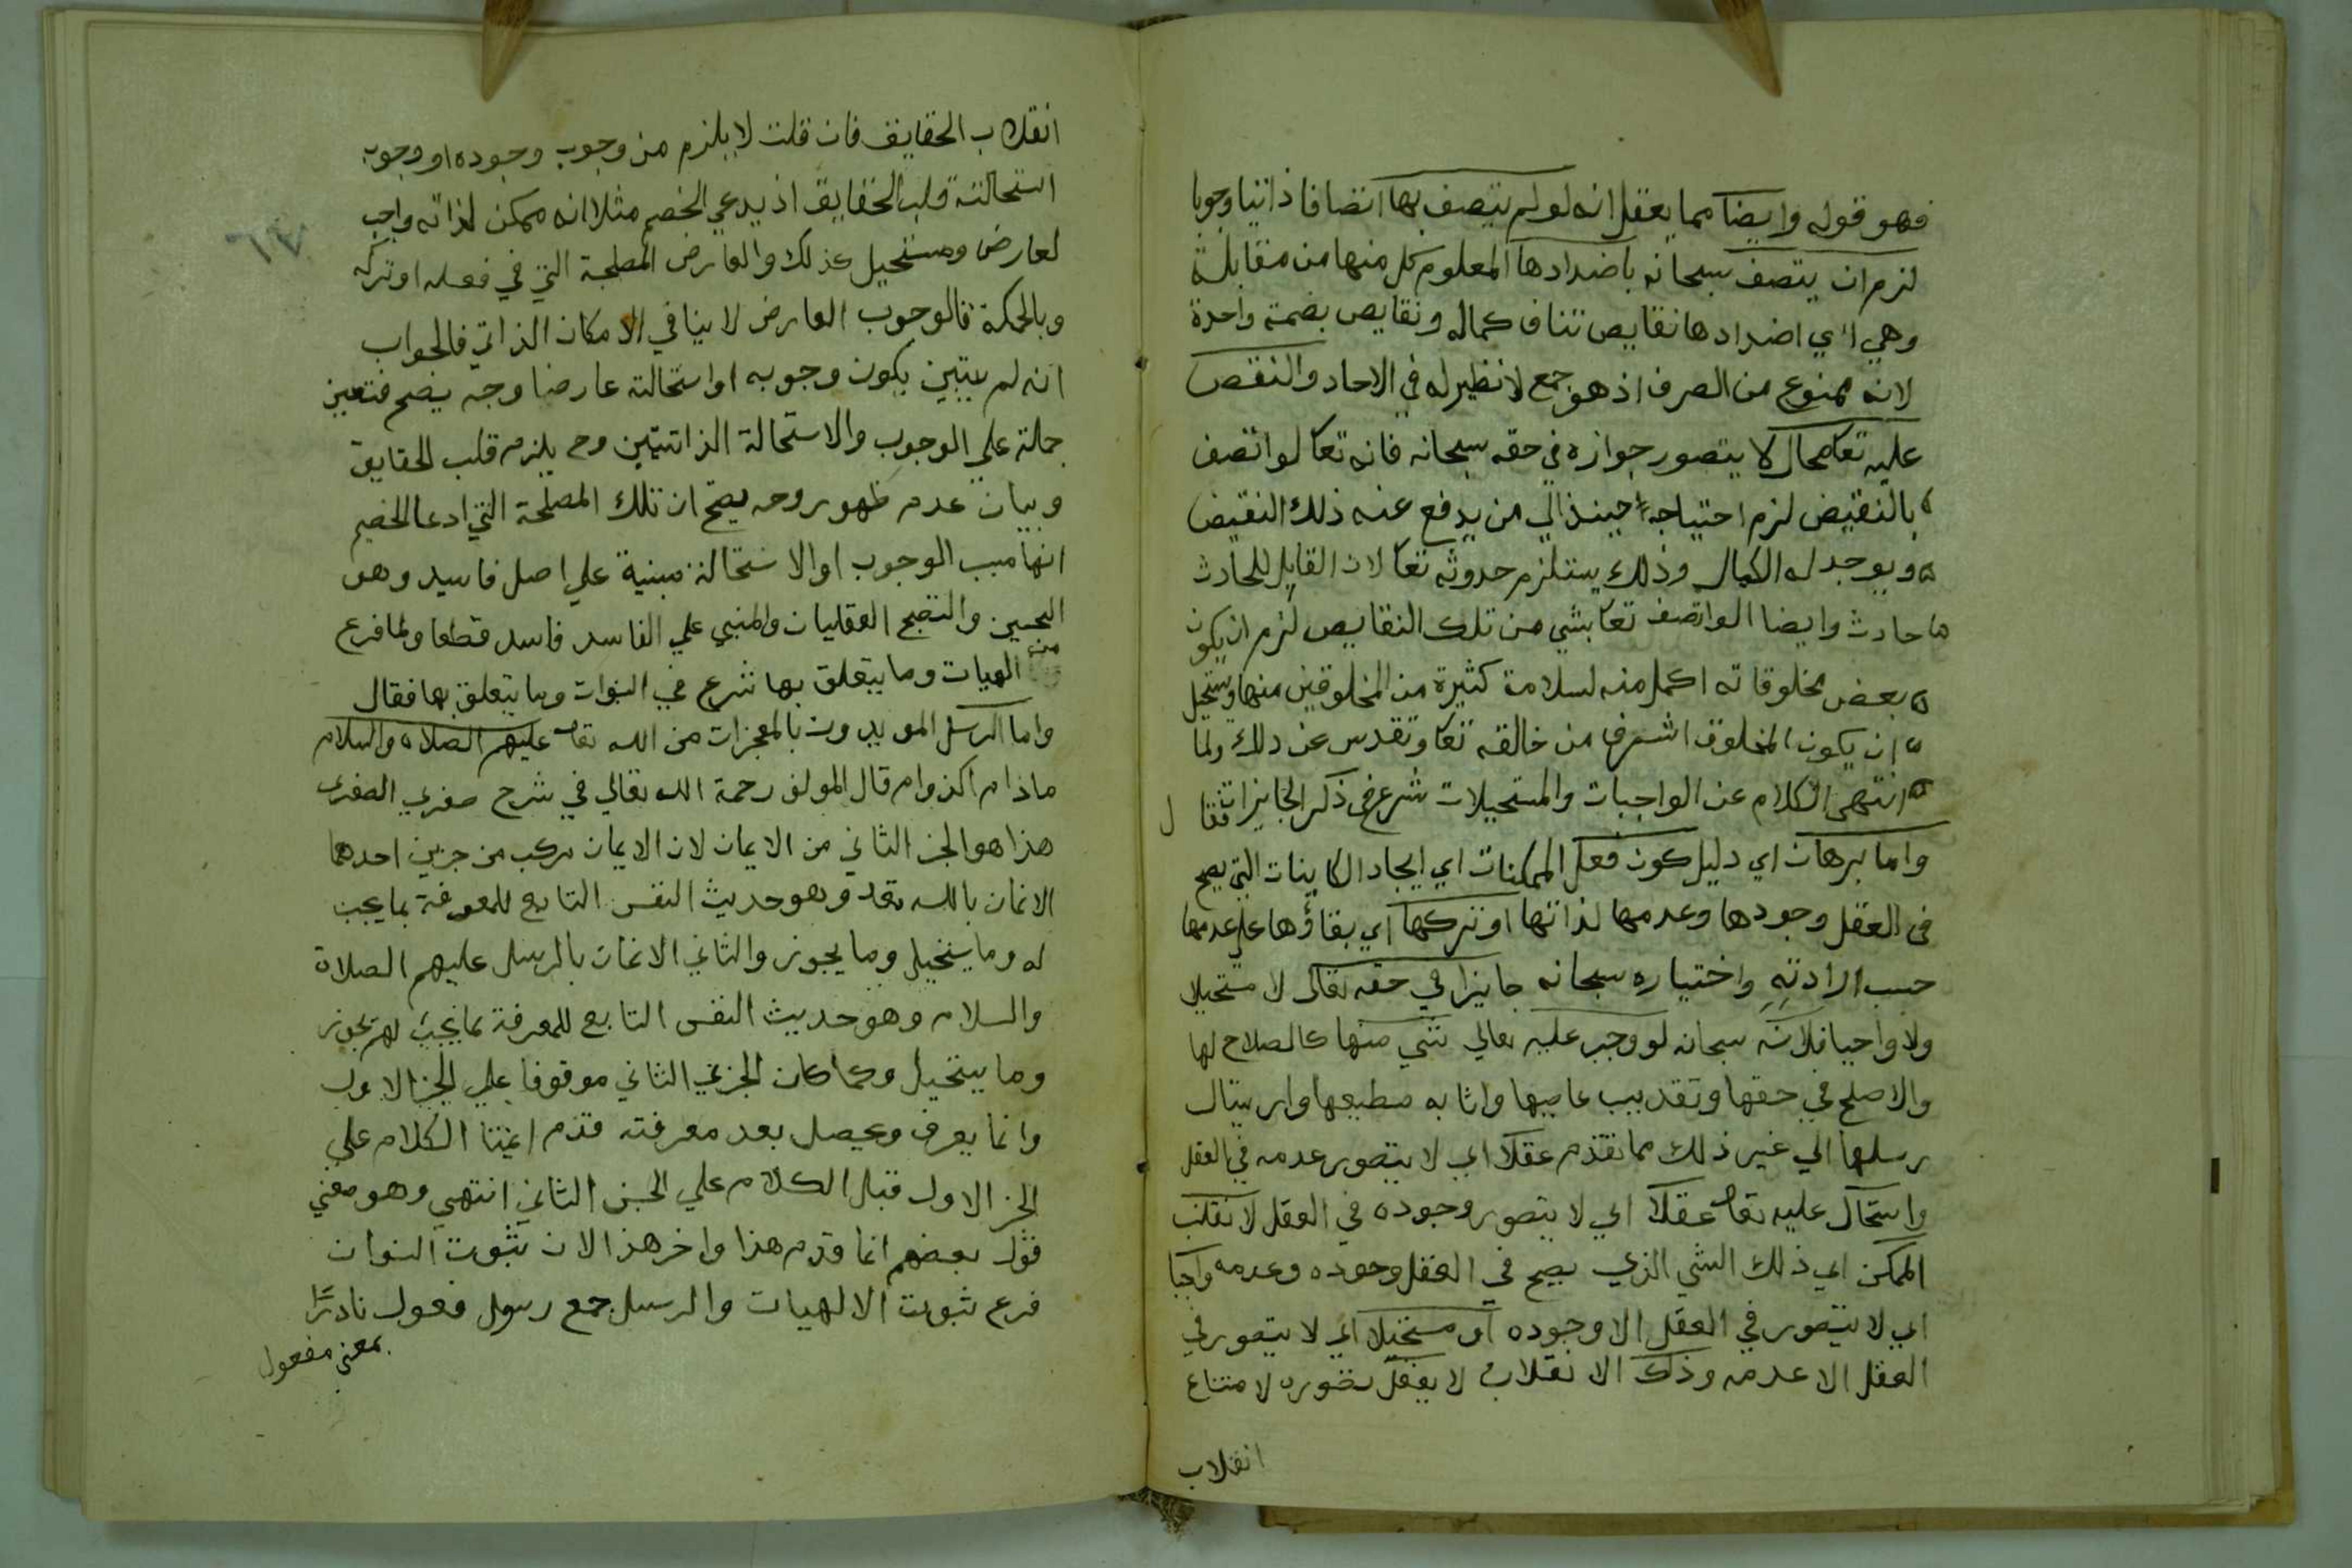 فهو قوله وايضا مما يعقل انه لو لم يتصف بها اتصافا ذاتيا وجوبا
لزم ان يتصف سبحانه باضدادها المعلوم كل منها من مقابلة
وهي اي اضدادها نقايص تناف كماله ونقايص بضمة واحدة
لانه ممنوع من الصرف اذ هو جمع لا نظير له في الاحاد والنقص
عليه تعا محال لا يتصور جوازه في حقه سبحانه فانه تعا لو اتصف
بالنقيض لزم احتياجه حينئذ الي من يدفع عنه ذلك النقيض
ويوجد له الكمال وذلك يستلزم حدوثه تعا لان القابل للحادث
حادث وايضا لو اتصف تعا بشي من تلك النقايص لزم ان يكون
بعض مخلوقاته اكمل منه لسلامة كثيرة من المخلوقين منها ويستحيل
ان يكون المخلوق اشرف من خالقه تعا وتقدس عن ذلك ولما
انتهي الكلام عن الواجبات والمستحيلات شرع في ذكر الجايزات فقال
واما برهان اي دليل كون فعل الممكنات اي ايجاد الكاينات التي يصح
في العقل وجودها وعدمها لذاتها او تركها اي بقاؤها علي عدمها
حسب ارادته واختياره سبحانه جايزا في حقه تعالى لا مستحيلا
ولا واجبا فلانه سبحانه لو وجب عليه تعالي شي منها كالصلاح لها
والاصلح في حقها وتعذيب عاصيها واثابه مطيعها وارسال
رسلها الي غير ذلك مما تقدم عقلا اي لا يتصور عدمه في العقل
واستحال عليه تعا عقلا اي لا يتصور وجوده في العقل لانقلب
الممكن اي ذلك الشي الذي يصح في العقل وجوده وعدمه واجبا
اي لا يتصور في العقل الا وجوده او مستحيلا اي لا يتصور في
العقل الا عدمه وذلك الانقلاب لا يعقل تصوره لامتناع
انقلاب
انقلاب الحقايق فان قلت لا يلزم من وجوب وجوده او وجوب
استحالته قلب الحقايق اذ يدعي الخصم مثلا انه ممكن لذاته واجب
لعارض ومستحيل كذلك والعارض المصلحة التي في فعله او تركه
وبالحكمة فالوجوب العارض لا ينافي الامكان الذاتي فالجواب
انه لم يتبين بكون وجوبه او استحالته عارضا وجه يصح فتعين
حمله علي الوجوب والاستحالة الذاتيتين وح يلزم قلب الحقايق
وبيان عدم ظهور وجه يصح ان تلك المصلحة التي ادعا الخصم
انها سبب الوجوب او الاستحالة مبنية علي اصل فاسد وهو
التحسين والتقبيح العقليان والمبني علي الفاسد فاسد قطعا ولما فرغ
من الهيات وما يتعلق بها شرع في النبوات وما يتعلق بها فقال
واما الرسل المويدون بالمعجزات من الله تعا عليهم الصلاه والسلام
قال المولف رحمة الله تعالي في شرح صغري الصغرى
هذا هو الجز الثاني من الايمان لان الايمان مركب من جزين احدهما
الايمان بالله تعا وهو حديث النفس التابع للمعرفة بما يجب
له وما يستحيل وما يجوز والثاني الايمان بالرسل عليهم الصلاة
والسلام وهو حديث النفس التابع للمعرفة بما يجب لهم يجوز
وما يستحيل وكما كان الجزي الثاني موقوفا علي الجز الاول
وانما يعرف ويحصل بعد معرفته قدم ايمتنا الكلام على
الجز الاول قبل الكلام علي الجز الثاني انتهي وهو معني
قول بعضهم انما قدم هذا واخر هذا لان ثبوت النبوات
فرع ثبوت الالهيات والرسل جمع رسول فعول نادرًا
بمعني مفعول